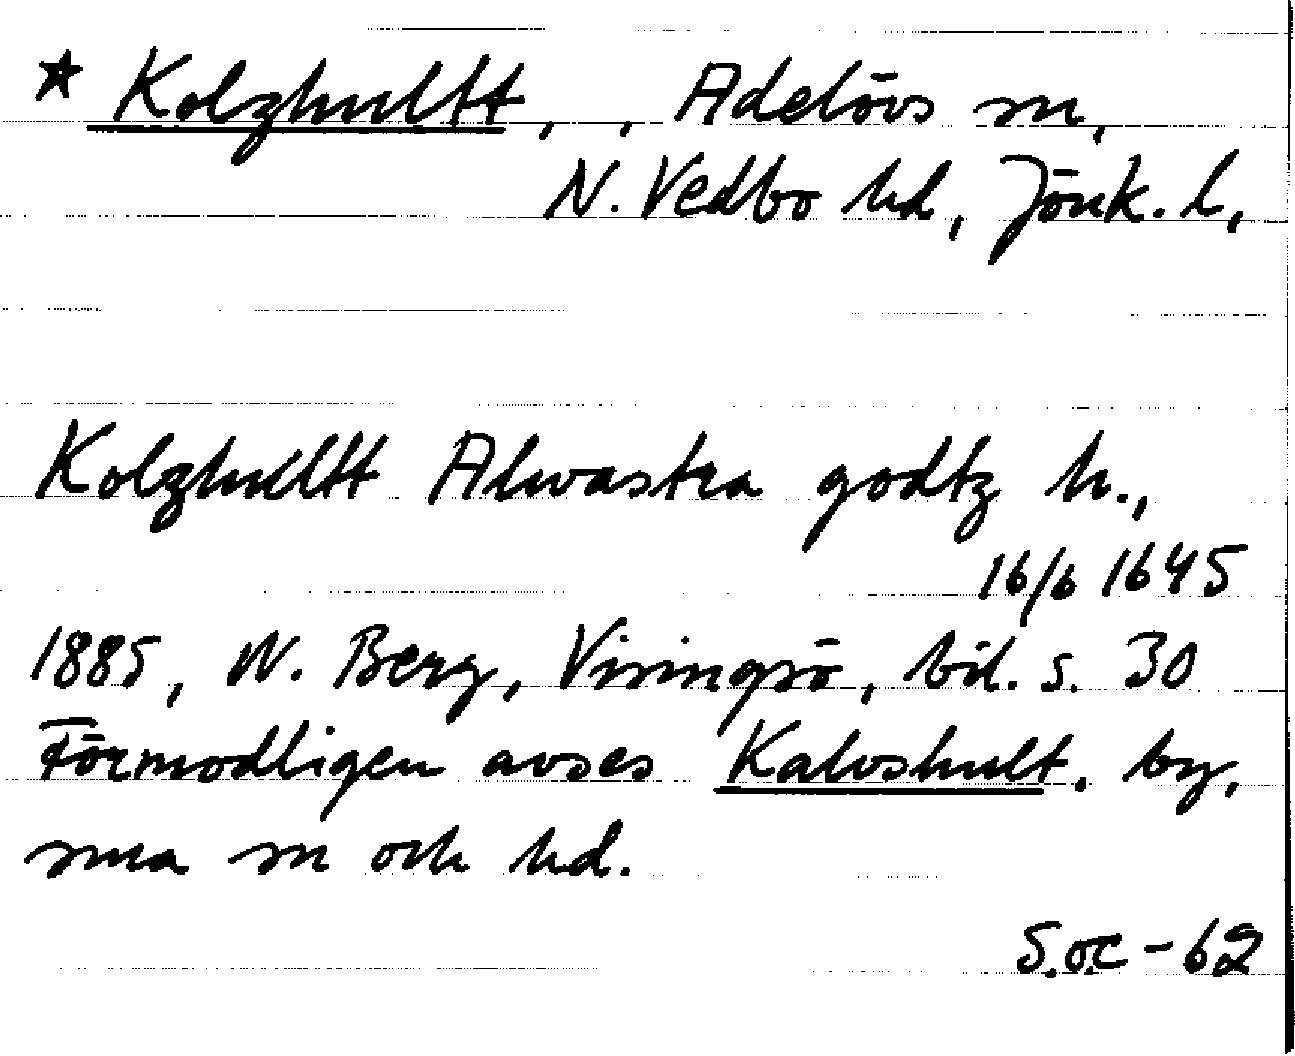 * Kolzhultt, , Adelövs sn,
N. Vedbo hd, Jönk. l,
Kolzhulltt Alwastra godtz h.,
16/6 1645
1885, W. Berg, Visingsö, bil. s. 30
Förmodligen avses Kalvshult. by,
sma sn och hd.
S.o.C - 62